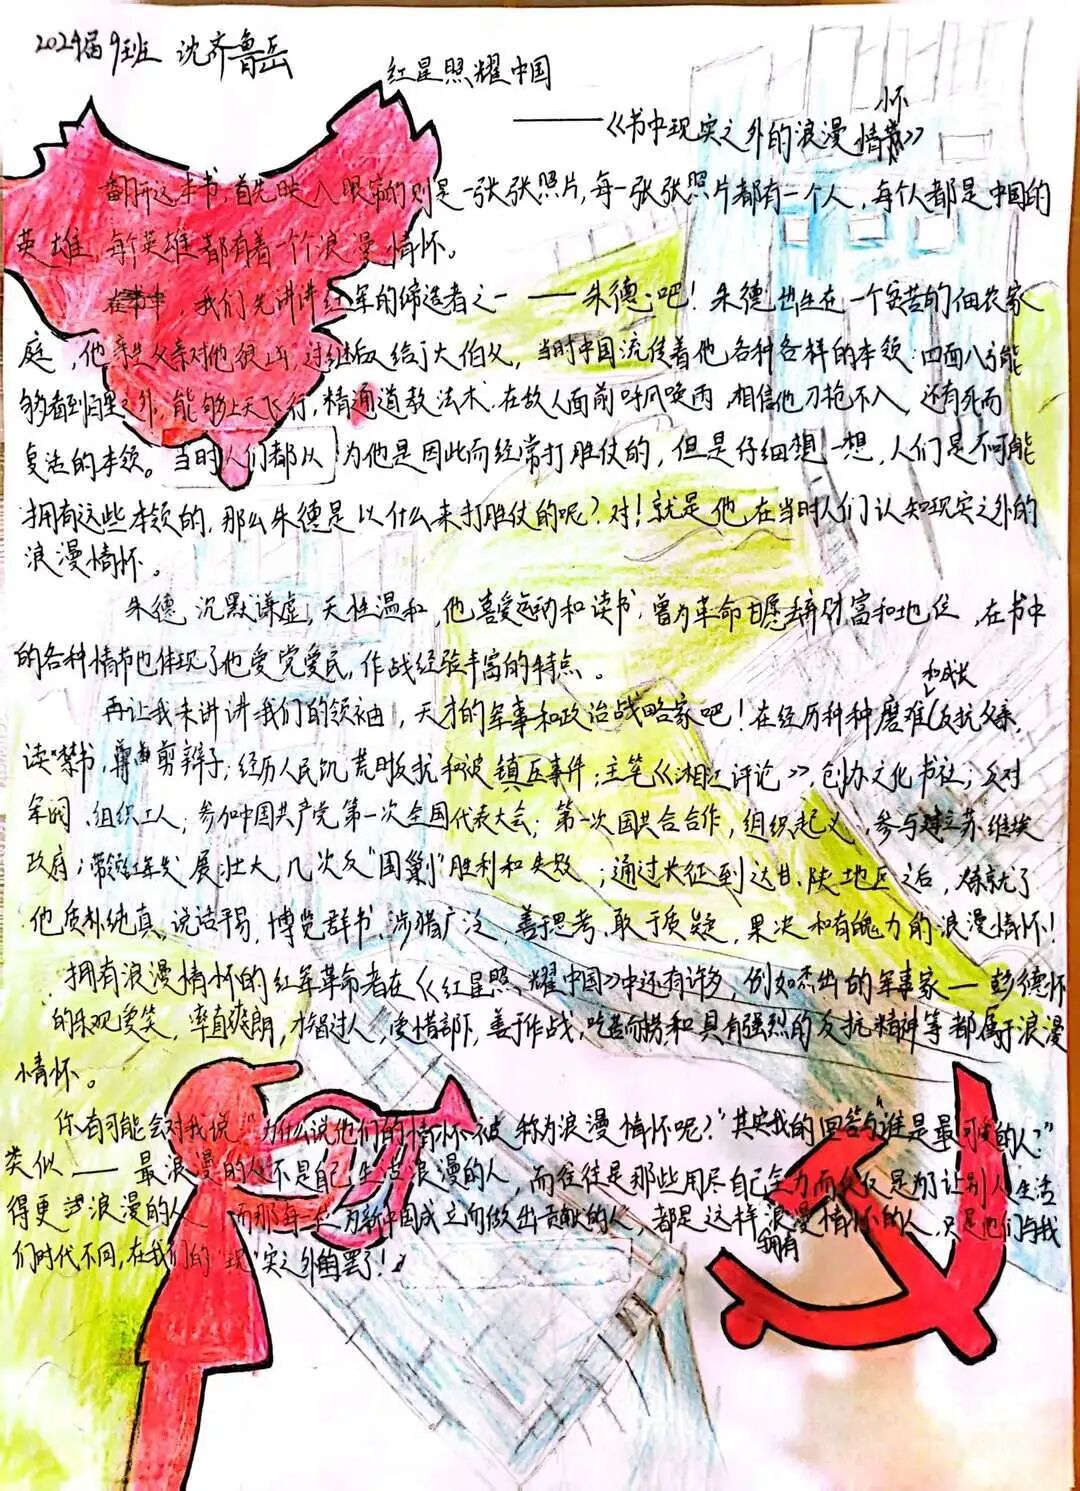 2024届9班 沈齐鲁岳
红星照耀中国
——《书中现实之外的浪漫情怀》
翻开这本书,首先映入眼帘的则是一张张照片,每一张张照片都有一个人,每个人都是中国的
英雄,每个英雄都有着一个浪漫情怀。
我们先讲讲红军的缔造者之一——朱德吧!朱德出生在一个贫苦的佃农家
庭,他亲生父亲对他很凶,过继给了大伯父,当时中国流传着他各种各样的本领:四面八方能
够看到百里之外,能够上天飞行,精通道教法术.在敌人面前呼风唤雨,相信他刀枪不入,还有死而
复活的本领。当时人们都以为他是因此而经常打胜仗的,但是仔细想一想,人们是不可能
拥有这些本领的,那么朱德是以什么来打胜仗的呢?对!就是他在当时人们认知现实之外的
浪漫情怀。
朱德,沉默谦虚,天性温和,他喜爱运动和读书,曾为革命甘愿丢弃财富和地位,在书中
的各种情节也体现了他爱党爱民,作战经验丰富的特点。
再让我来讲讲我们的领袖,天才的军事和政治战略家吧!在经历种种磨难和成长(反抗父亲,
读"禁书,剪辫子;经历人民饥荒时反抗和被镇压事件;主笔《湘江评论》,创办文化书社;反对
军阀、组织工人;参加中国共产党第一次全国代表大会;第一次国共合作,组织起义,参与建立苏维埃
政府;带领红军发展壮大,几次反"围剿"胜利和失败;通过长征到达甘、陕地区之后,炼就了
他质朴纯真,说话平易,博览群书,涉猎广泛,善于思考、敢于质疑,果决和有魄力的浪漫情怀!
拥有浪漫情怀的红军革命者在《红星照耀中国》中还有许多,例如杰出的军事家—彭德怀
的乐观爱笑,率直爽朗,才智过人,爱惜部下,善于作战,吃苦耐劳和具有强烈的反抗精神等都属于浪漫
情怀。
你有可能会对我说"为什么说他们的情怀被称为浪漫情怀呢?"其实我的回答与"谁是最可爱的人?"
类似——最浪漫的人不是自己生活浪漫的人,而往往是那些用尽自己全力而仅仅是为了让别人生活
得更浪漫的人,而那每一个为新中国成立而做出贡献的人,都是这样拥有浪漫情怀的人,只是他们与我
们时代不同,在我们的"现"实之外罢了!